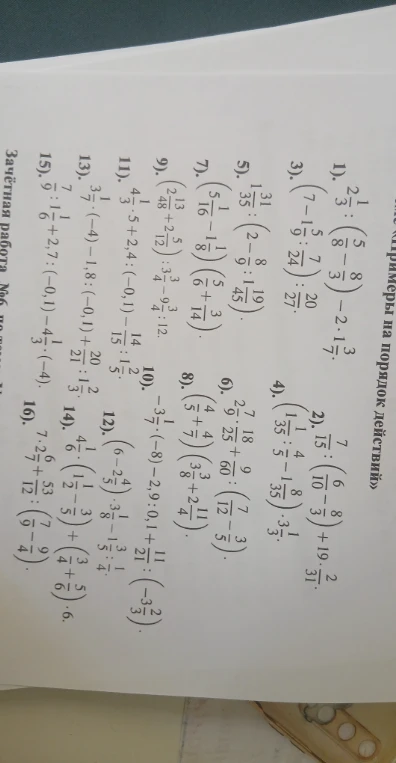 «Примеры на порядок действий»
1). 2 1/3 : (5/8 − 8/3) − 2 · 1 3/7.
2). 7/15 : (6/10 − 8/3) + 19 · 2/31.
3). (7 − 1 5/9 : 7/24) : 20/27.
4). (1 1/35 : 4/5 − 1 8/35) · 3 1/3.
5). 1 31/35 : (2 − 8/9 : 1 19/45).
6). 2 7/9 · 18/25 + 9/60 : (7/12 − 3/5).
7). (5 1/16 − 1 1/8) (5/6 + 3/14).
8). (4/5 + 4/7) · (3 3/8 + 2 11/4).
9). (2 13/48 + 2 5/12) : 3 3/4 − 9 3/4 : 12.
10). −3 1/7 · (−8) − 2,9 : 0,1 + 11/21 : (−3 2/3).
11). 4 1/3 · 5 + 2,4 : (−0,1) − 14/15 : 1 2/5.
12). (6 − 2 4/5) · 3 1/8 − 1 3/5 : 1/4.
13). 3 1/7 · (−4) − 1,8 : (−0,1) + 20/21 : 1 2/3.
14). 4 1/6 · (1 1/2 − 3/5) + (3/4 + 5/6) · 6.
15). 7/9 : 1 1/6 + 2,7 : (−0,1) − 4 1/3 · (−4).
16). 7 · 2 6/7 + 53/12 : (7/9 − 9/4).
Зачётная работа №6